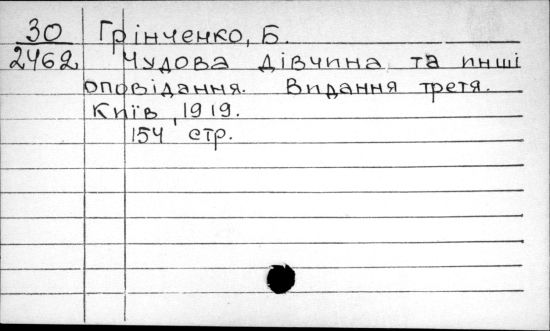 30 Грінченко, Б.
2462 Чудова дівчина та инші
оповідання. Видання третя.
Київ, 1919.
154 стр.